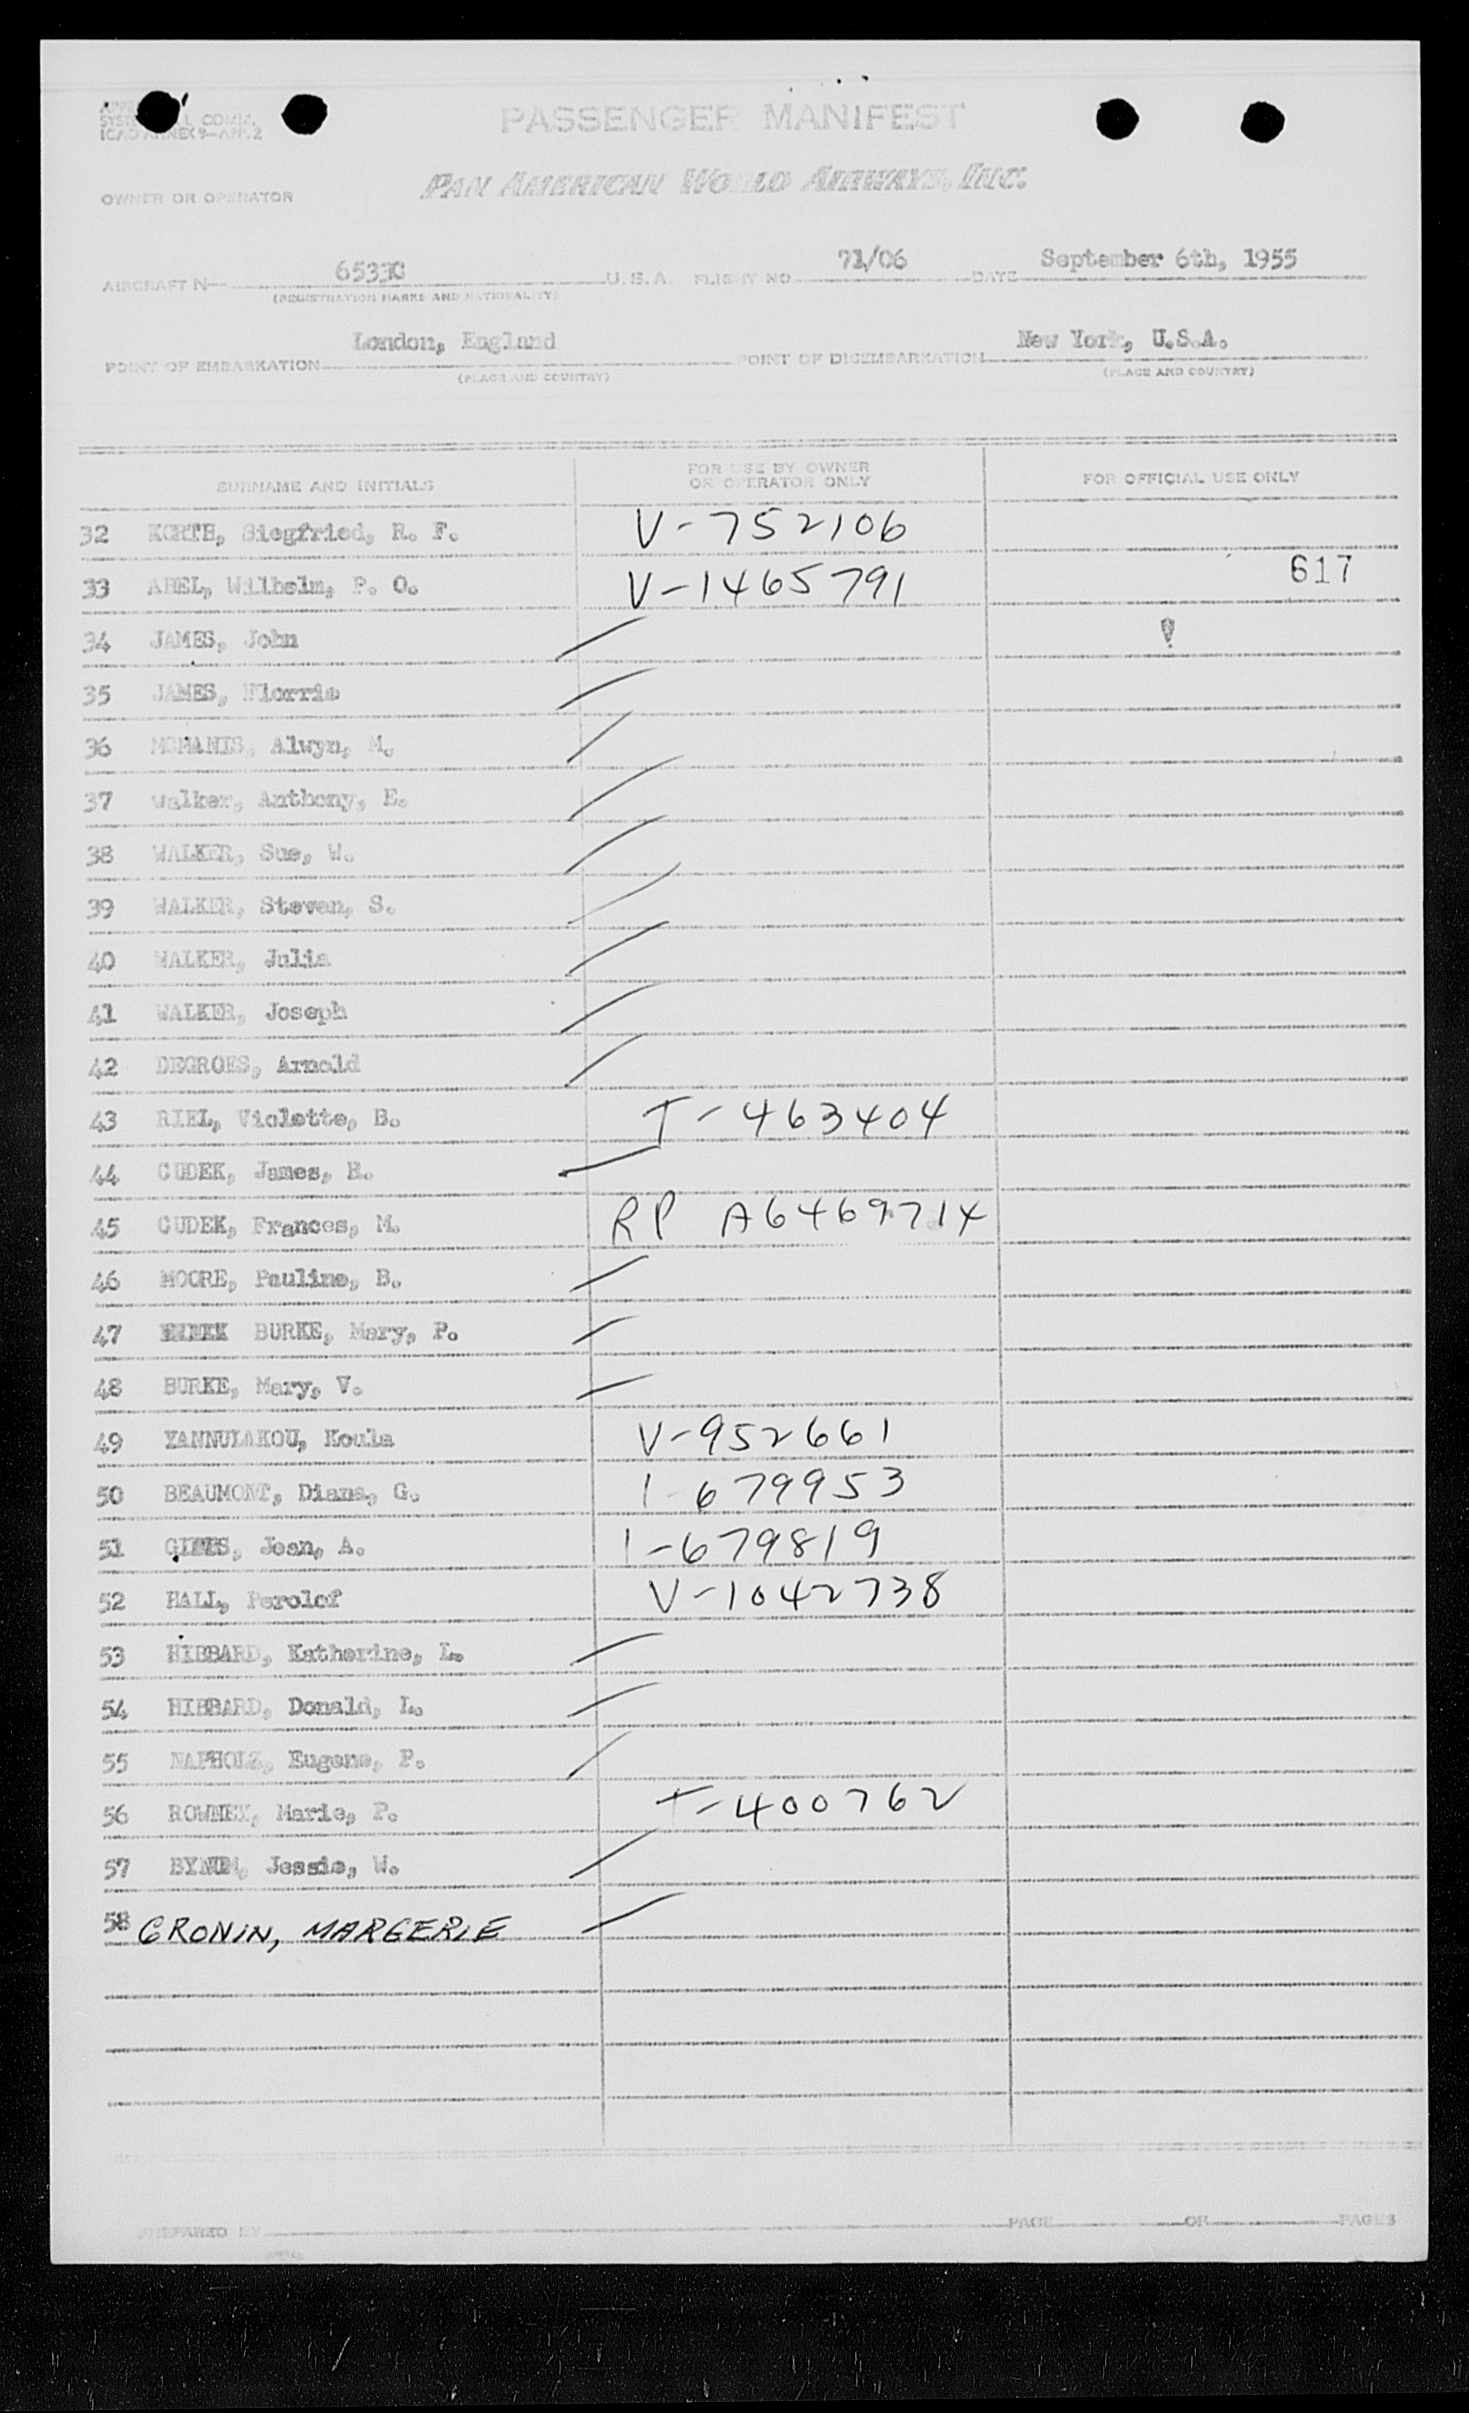 PASSENGER MANIFEST
PAN AMERICAN WORLD AIRWAYS, INC.
ICAO ANNEX 9—
OWNER OR OPERATOR
AIRCRAFT N— 6533C U.S.A. FLIGHT NO 71/06 DATE September 6th, 1955
(REGISTRATION MARKS AND NATIONALITY)
POINT OF EMBARKATION London, England POINT OF DISEMBARKATION New York, U.S.A.
(PLACE AND COUNTRY) (PLACE AND COUNTRY)
SURNAME AND INITIALS FOR USE BY OWNER OR OPERATOR ONLY FOR OFFICIAL USE ONLY
32 KORTH, Siegfried, R. F. V-752106
33 ABEL, Wilhelm, P. O. V-1465791 617
34 JAMES, John
35 JAMES, Florrie
36 Alwyn, M.
37 Walker, Anthony, E.
38 WALKER, Sue, W.
39 WALKER, Steven, S.
40 WALKER, Julia
41 WALKER, Joseph
42 DEGROES, Arnold
43 RIEL, Violette, B. T-463404
44 CUDEK, James, R.
45 CUDEK, Frances, M. RP A6469714
46 MOORE, Pauline, B.
47 BURKE, Mary, P.
48 BURKE, Mary, V.
49 YANNULAKOU, Koula V-952661
50 BEAUMONT, Diana, G. 1-679953
51 Jean, A. 1-679819
52 HALL, Perolof V-1042738
53 HIBBARD, Katherine, L.
54 HIBBARD, Donald, L.
55 NAPHOLZ, Eugene, P.
56 Marie, P. T-400762
57 BYNUM, Jessie, W.
58 CRONIN, MARGERIE
PREPARED BY PAGE OF PAGES